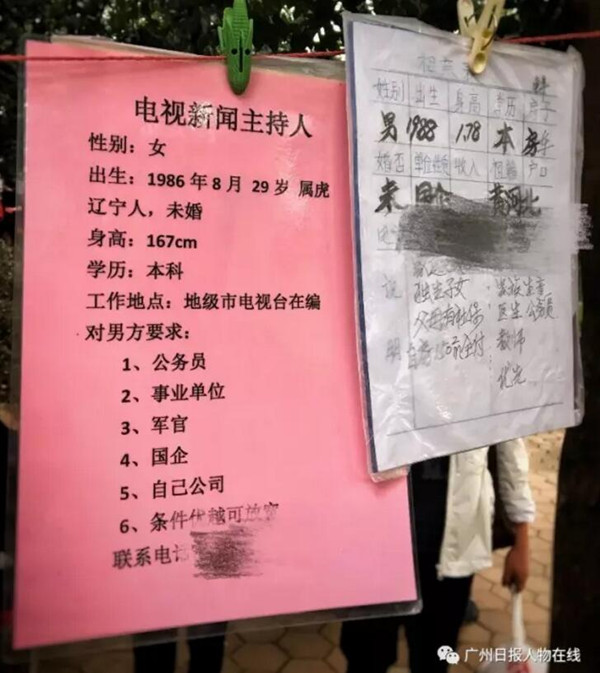 电视新闻主持人
性别：女
出生：1986年8月 29岁 属虎
辽宁人，未婚
身高：167cm
学历：本科
工作地点：地级市电视台在编
对男方要求：
1、公务员
2、事业单位
3、军官
4、国企
5、自己公司
6、条件优越可放宽
联系电话
性别 出生 身高 学历
男 1988 1.78 本
婚否 收入 户口
未
说
独生子女
父母有社保 医生 公务员
明 教师
优先
广州日报人物在线